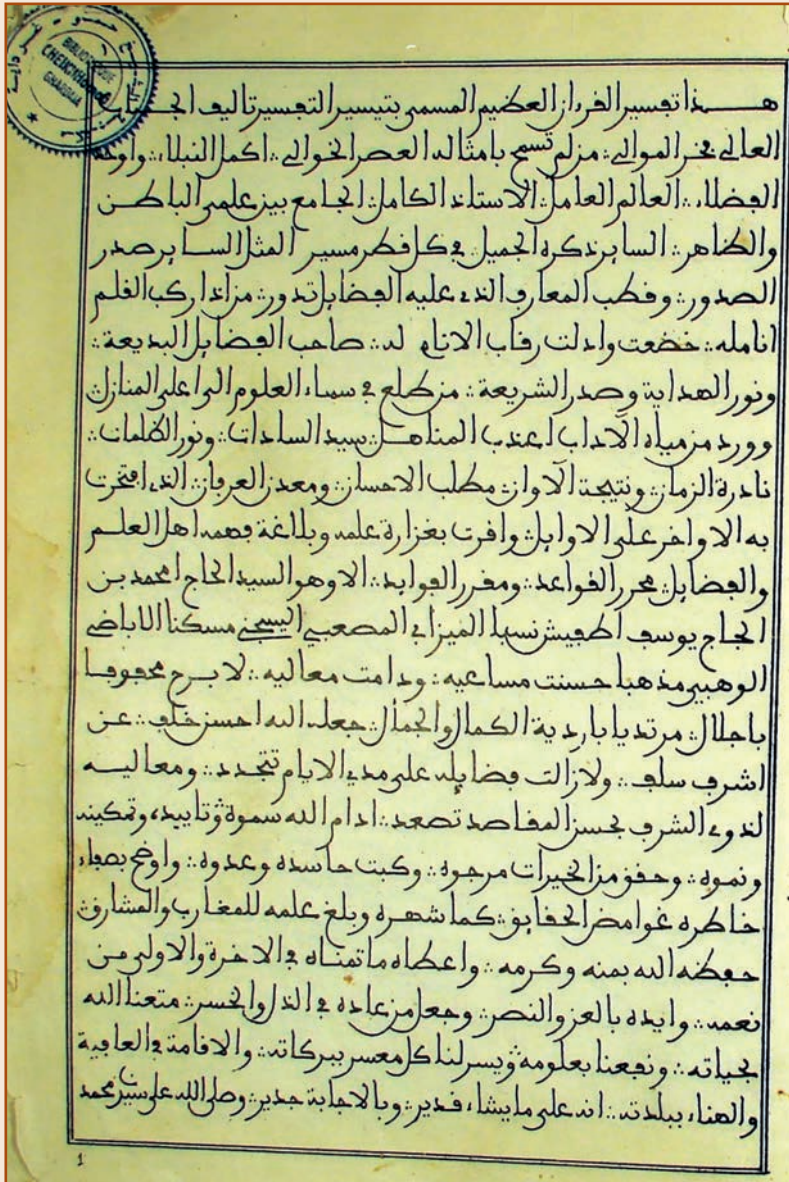 BIBLIOTHEQUE
CHEIKH HAMMOU
GHARDAIA
هذا تفسير القرءان العظيم المسمى بتيسير التفسير تاليف الجناب
العالي فخر الموالي ∴ من لم تسمح بامثاله العصر الخوالي ∴ اكمل النبلاء ∴ واوحد
الفضلاء ∴ العالم العامل ∴ الاستاذ الكامل ∴ الجامع بين علمي الباطن
والظاهر ∴ الساير ذكره الجميل في كل قطر مسير المثل الساير صدر
الصدور ∴ وقطب المعارف الذي عليه الفضايل تدور ∴ من اذا ركب القلم
انامله ∴ خضعت واذلت رقاب الانام له ∴ صاحب الفضايل البديعة ∴
ونور الهداية وصدر الشريعة ∴ من طلع في سماء العلوم الى اعلى المنازل ∴
وورد من مياه الآداب اعذب المناهل ∴ سيد السادات ∴ ونور الظلمات ∴
نادرة الزمان ∴ ونتيجة الآوان ∴ مطلب الاحسان ∴ ومعدن العرفان ∴ الذي افتخرت
به الاواخر على الاوايل ∴ واقرت بغزارة علمه وبلاغة فهمه اهل العلم
والفضايل ∴ محرر القواعد ∴ ومقرر الفوايد ∴ الا وهو السيد الحاج امحمد بن
الحاج يوسف اطفيش نسبا الميزابي المصعبي اليسجني مسكنا الاباضي
الوهبي مذهبا حسنت مساعيه ∴ ودامت معاليه ∴ لا برح محفوفا
باجلال ∴ مرتديا باردية الكمال والجمال ∴ جعله الله احسن خلف ∴ عن
اشرف سلف ∴ ولا زالت فضايله على مدى الايام تتجدد ∴ ومعاليه
لذوي الشرف بحسن المقاصد تصعد ∴ ادام الله سموه ∴ وتاييده وتمكينه
ونموه ∴ وحقق من الخيرات مرجوه ∴ وكبت حاسده وعدوه ∴ واوضح بصفاء
خاطره غوامض الحقايق ∴ كما شهره وبلغ علمه للمغارب والمشارق ∴
حفظه الله بمنه وكرمه ∴ واعطاه ما تمناه في الاخرة والاولى من
نعمه ∴ وايده بالعز والنصر ∴ وجعل من عاده في الذل والخسر ∴ متعنا الله
بحياته ∴ ونفعنا بعلومه ∴ ويسر لنا كل معسر ببركاته ∴ والاقامة في العافية
والهناء ببلدته ∴ انه على ما يشاء قدير ∴ وبالاجابة جدير ∴ وصلى الله على سيدنا محمد
1